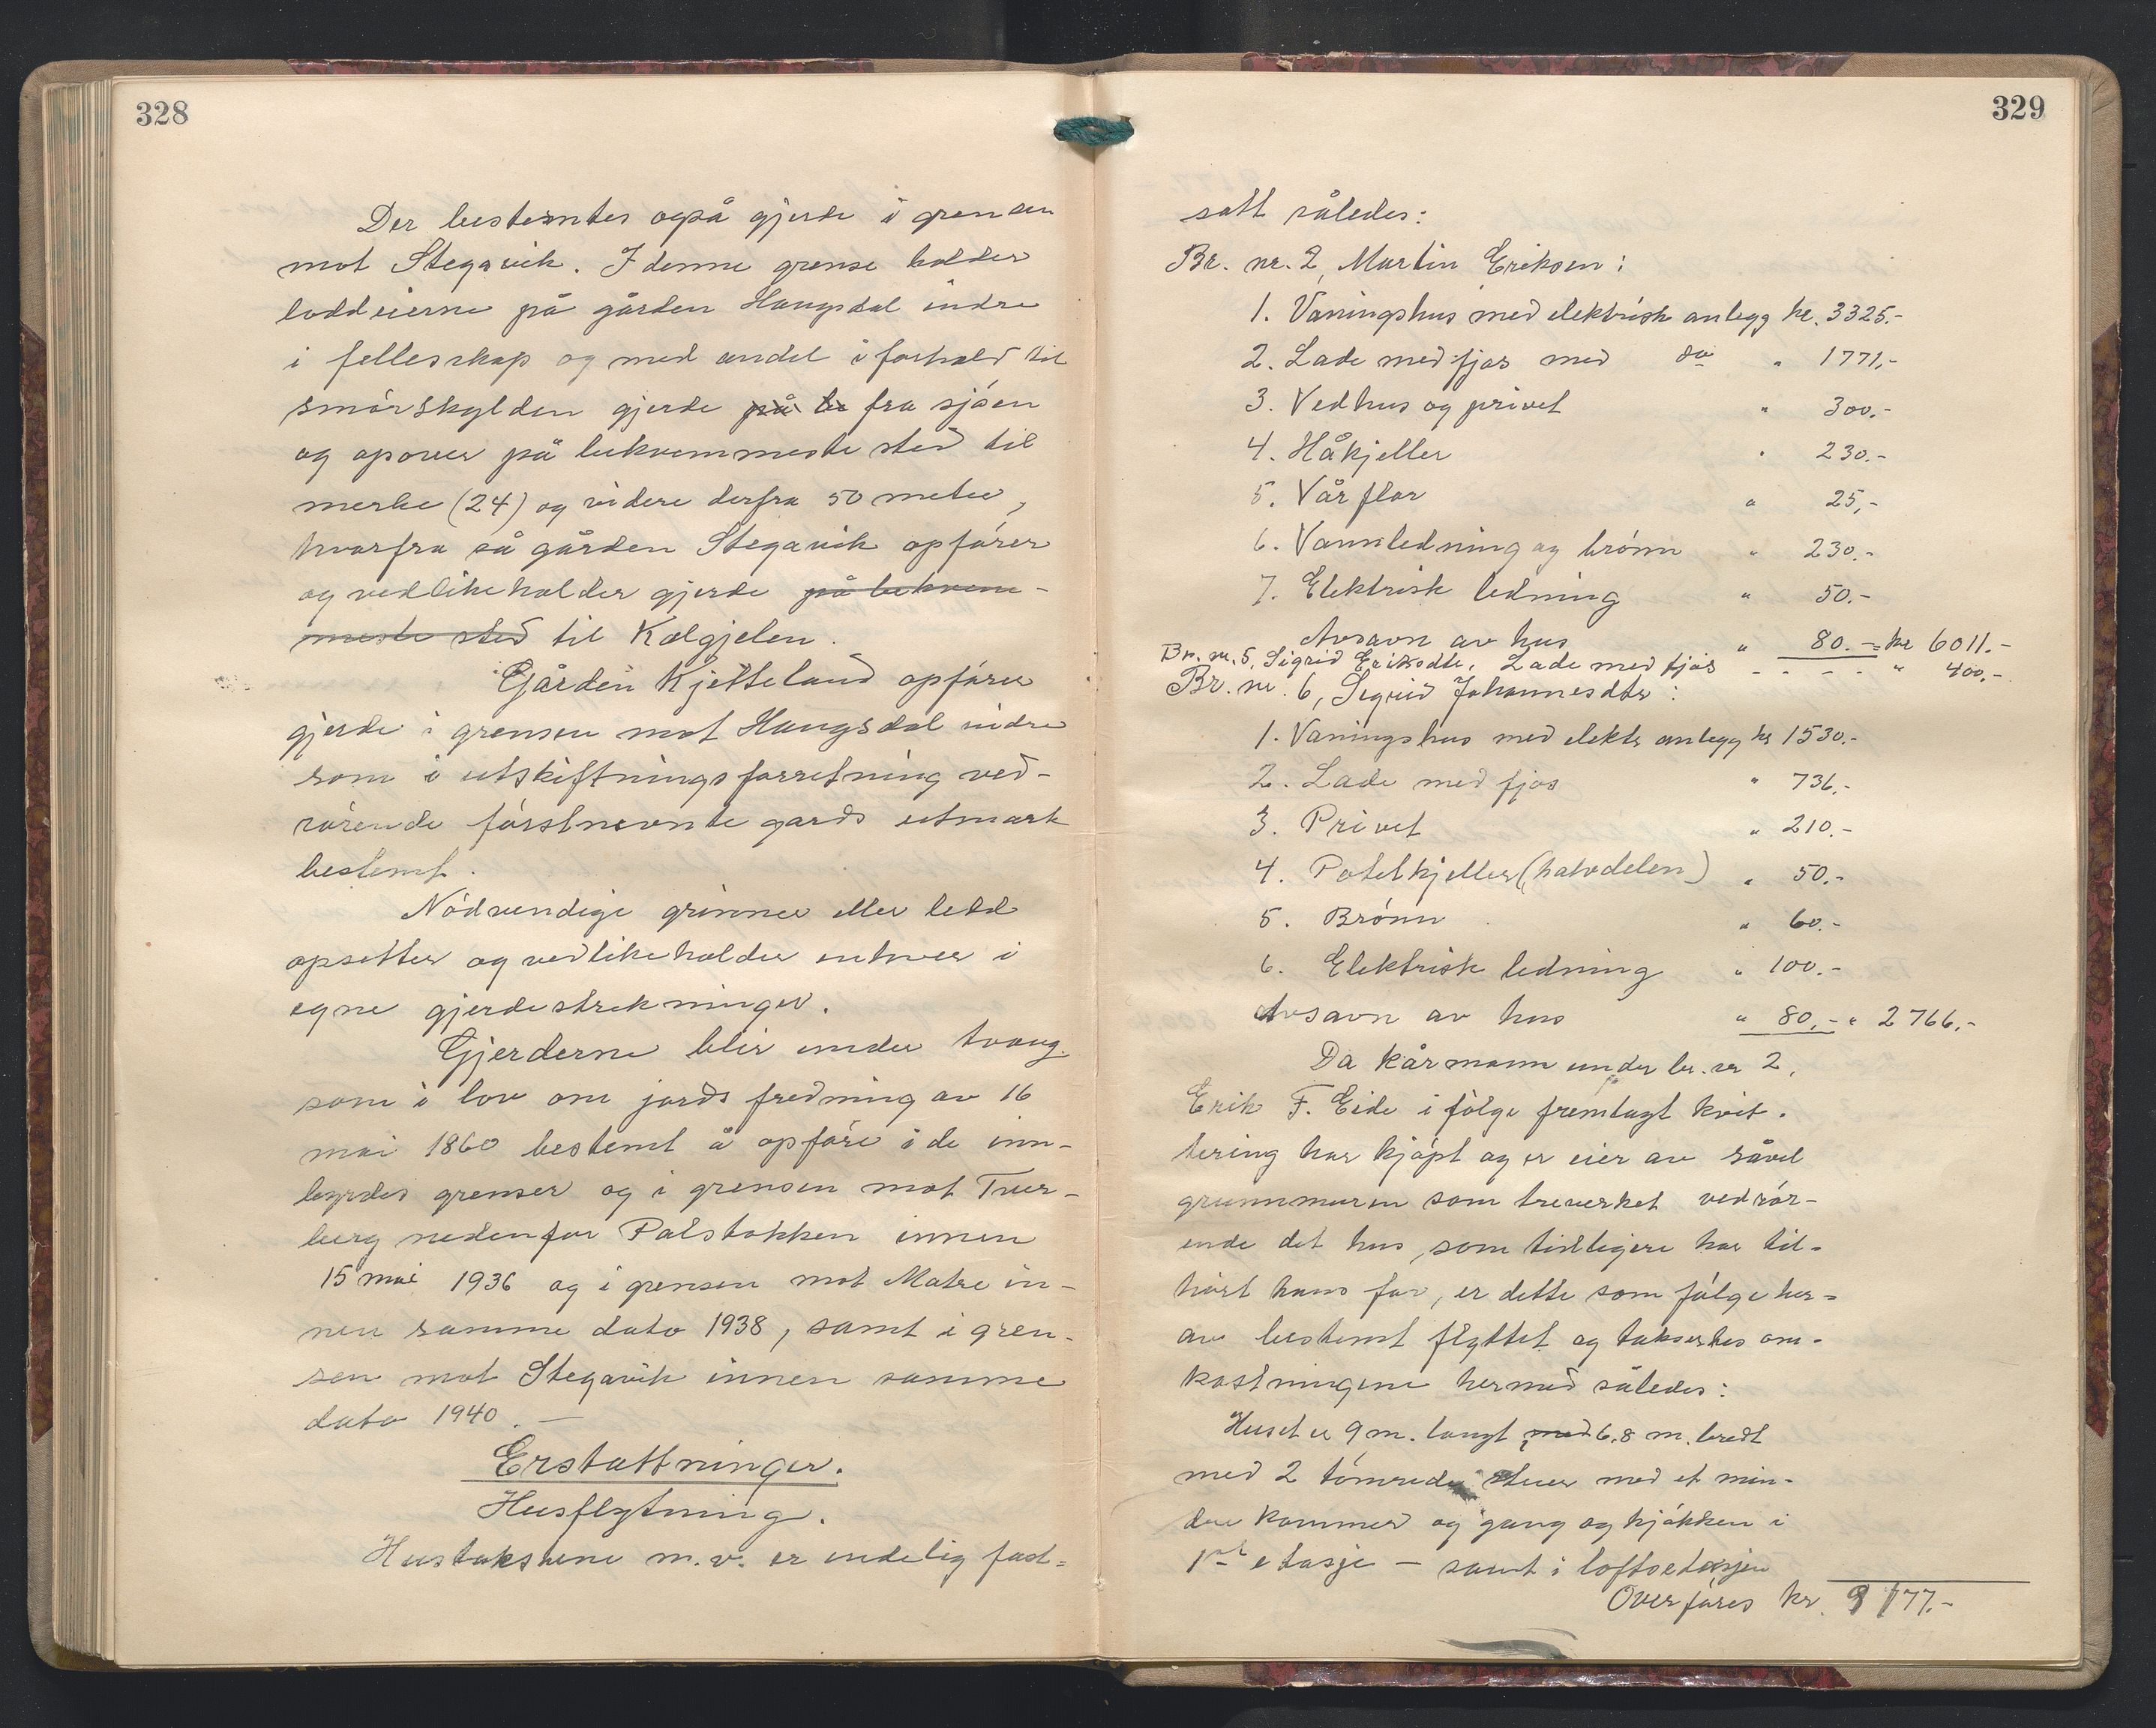 328
Der bestemtes også gjerde i grensen
mot Stegavik. I denne grense holder
loddeierne på gården Haugsdal indre
i fellesskap og med andel i forhold til
smörskylden gjerde på be fra sjöen
og opover på bekvemmeste sted til
merke (24) og videre derfra 50 meter,
hvorfra så gården Stegavik opförer
og vedlikeholder gjerde på bekvem-
meste sted til Kolgjelen.
Gården Kjetteland opförer
gjerde i grensen mot Haugsdal indre
som i utskiftningsforretning ved-
rörende förstnevnte gards utmark
bestemt.
Nödvendige grinner eller ledd
opsetter og vedlikeholder enhver i
egne gjerdestrekninger.
Gjerderne blir under tvang
som i lov om jords fredning av 16
mai 1860 bestemt å opföre i de inn-
byrdes grenser og i grensen mot Tver-
berg nedenfor Palstokken innen
15 mai 1936 og i grensen mot Matre in-
nen samme dato 1938, samt i gren-
sen mot Stegavik innen samme
dato 1940. —
Erstattninger.
Husflytning.
Hustakstene m.v. er endelig fast-
329
satt således:
Br. nr. 2, Martin Eriksen:
1. Våningshus med elektrisk anlegg kr. 3325.-
2. Lade med fjøs med do " 1771,-
3. Vedhus og privet " 300.-
4. Håkjeller " 230.-
5. Vårflor " 25,-
6. Vannledning og brönn " 230.-
7. Elektrisk ledning " 50.-
Avsavn av hus " 80.- = kr 6011.-
Br. nr. 5, Sigrid Eriksdtr. Lade med fjös - - - - " 400,-
Br. nr. 6, Sigrid Johannesdtr:
1. Våningshus med elektr anlegg kr 1530.-
2. Lade med fjös " 736,-
3. Privet " 210.-
4. Potetkjeller (halvdelen) " 50.-
5. Brönn " 60.-
6. Elektrisk ledning " 100.-
Avsavn av hus " 80,- " 2766,-
Da kårmann under br. nr 2,
Erik F. Eide i fölge fremlagt kvit-
tering har kjöpt og er eier av såvel
grunnmuren som treverket vedrör-
ende det hus, som tidligere har til-
hört hans far, er dette som fölge her-
av bestemt flyttet og takseres om-
kostningene hermed således:
Huset er 9 m. langt, med 6,8 m. bredt
med 2 tömrede stuer med et min-
dre kammer og gang og kjökken i
1ste etasje — samt i loftsetasjen
Overföres kr. 9177.-